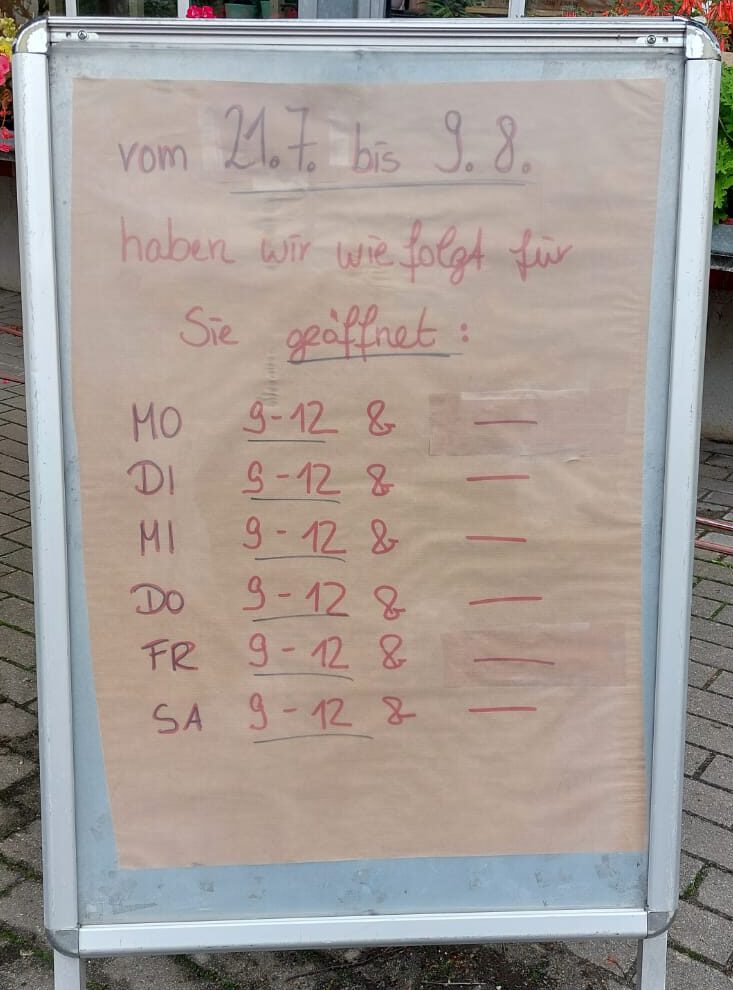 vom 21.7. bis 9.8.
haben wir wie folgt für
Sie geöffnet:
MO 9-12 & —
DI 9-12 & —
MI 9-12 & —
DO 9-12 & —
FR 9-12 & —
SA 9-12 & —